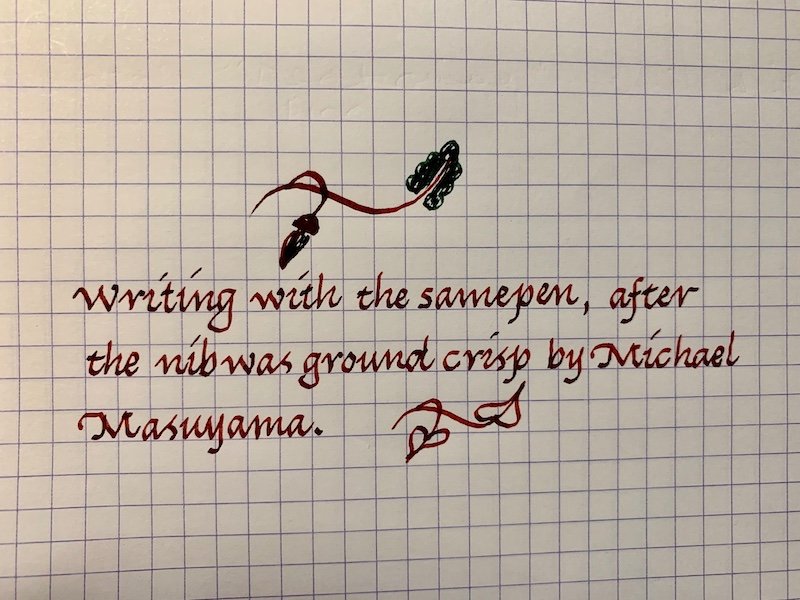 Writing with the samepen, after
the nib was ground crisp by Michael
Masuyama.